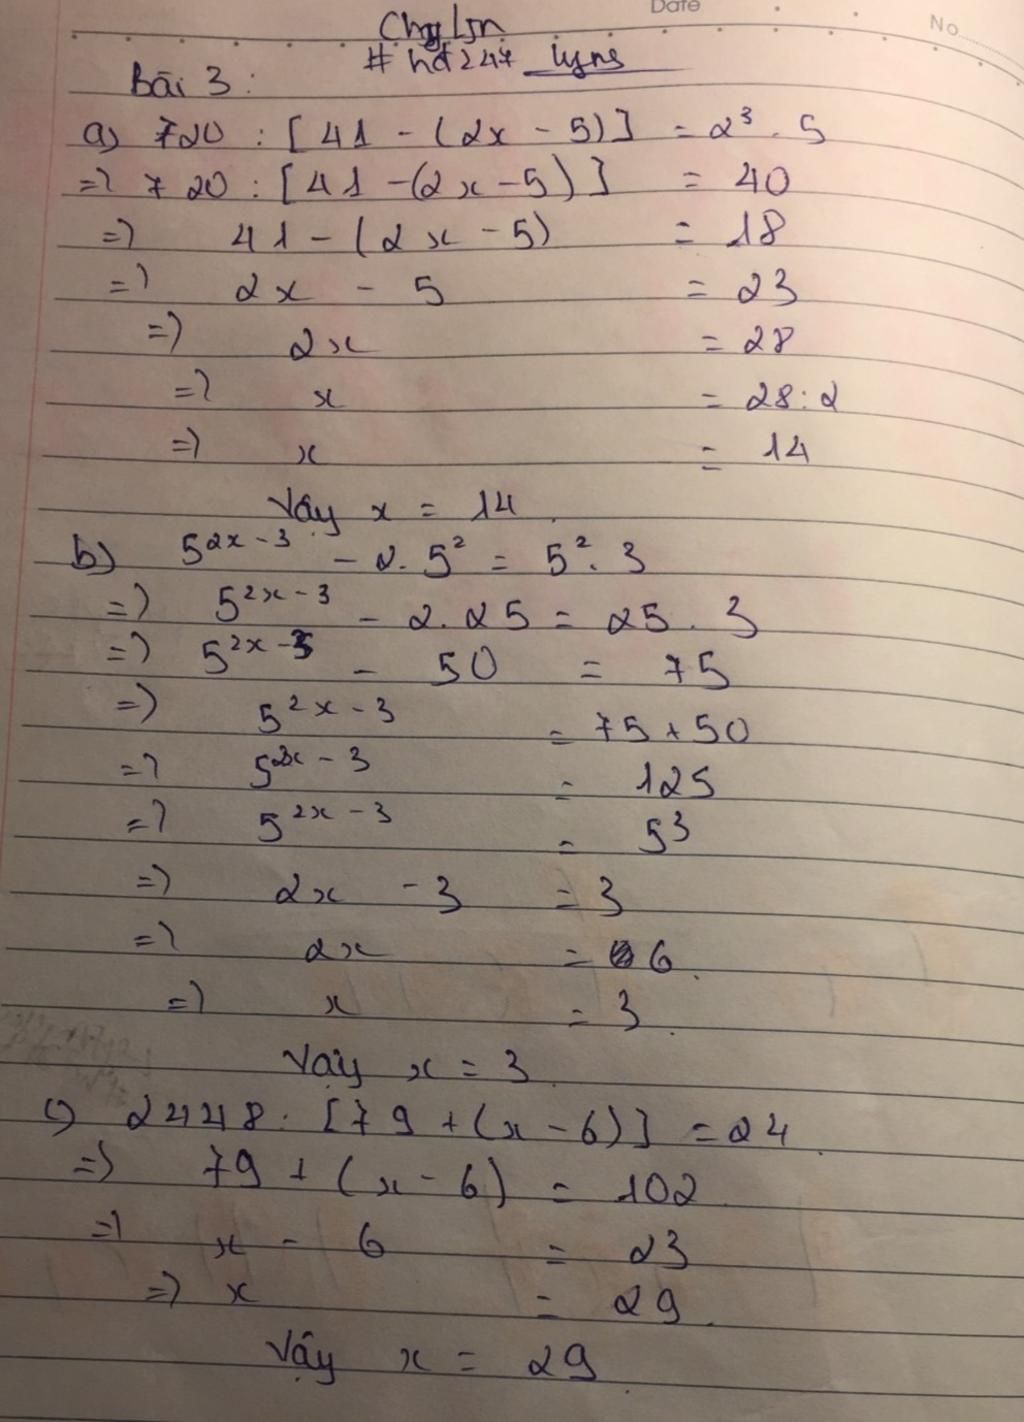 Date
No
Chy Lyn
# hđ247 lyns
Bài 3 :
a) 720 : [41 - (2x - 5)] = 2³ . 5
=> 720 : [41 - (2x - 5)] = 40
=> 41 - (2x - 5) = 18
=> 2x - 5 = 23
=> 2x = 28
=> x = 28 : 2
=> x = 14
Vây x = 14
b) 5²ˣ⁻³ - 2. 5² = 5² . 3
=> 5²ˣ⁻³ - 2. 25 = 25 . 3
=> 5²ˣ⁻³ - 50 = 75
=> 5²ˣ⁻³ = 75 + 50
=> 5²ˣ⁻³ = 125
=> 5²ˣ⁻³ = 5³
=> 2x - 3 = 3
=> 2x = 6
=> x = 3
Vậy x = 3
c) 2448 : [79 + (x - 6)] = 24
=> 79 + (x - 6) = 102
=> x - 6 = 23
=> x = 29
Vậy x = 29